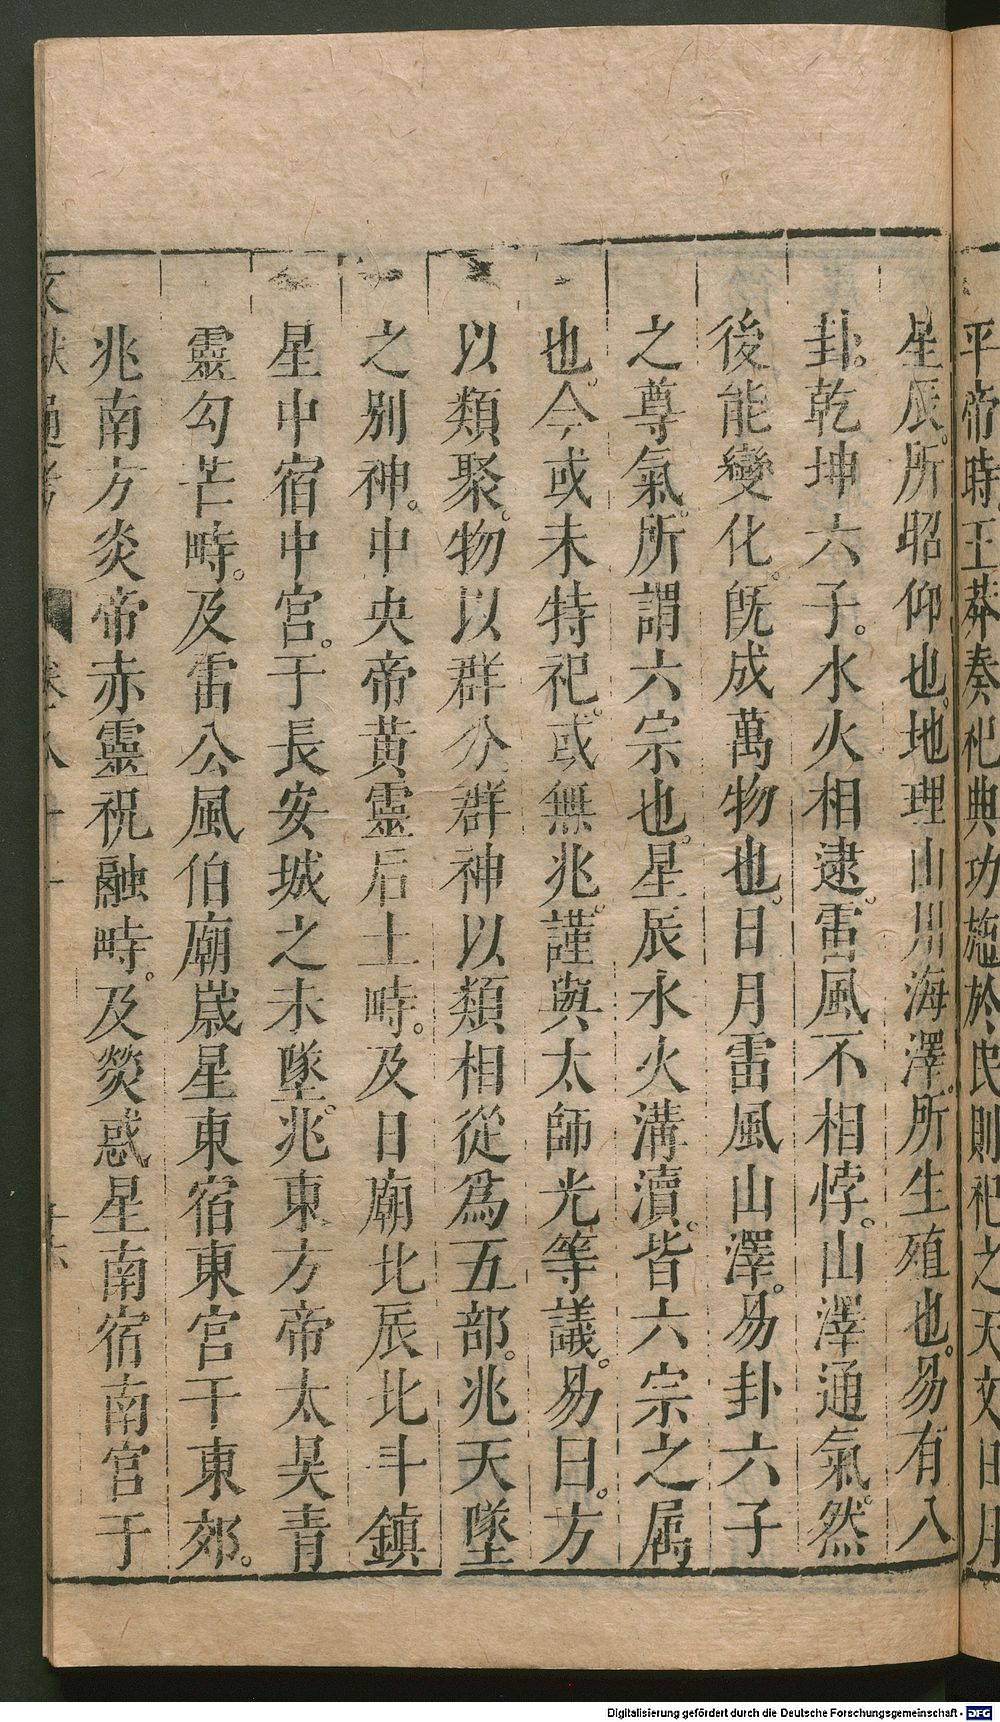 平帝時王莽奏祀典功施於民則祀之天文日月
星辰。所昭仰也。地理山川海澤。所生殖也。易有八
卦。乾坤六子。水火相逮。雷風不相悖。山澤通氣。然
後能變化。旣成萬物也。日月雷風山澤。易卦六子
之尊氣。所謂六宗也。星辰水火溝瀆。皆六宗之屬
也。今或未特祀。或無兆。謹與太師光等議。易曰。方
以類聚。物以群分。群神以類相從爲五部。兆天墜
之別神。中央帝黃靈后土畤。及日廟北辰北斗鎮
星中宿中宮。于長安城之未墜兆。東方帝太昊青
靈勾芒畤。及雷公風伯廟歲星東宿東宮于東郊。
兆南方炎帝赤靈祝融畤。及熒惑星南宿南宮于
Digitalisierung gefördert durch die Deutsche Forschungsgemeinschaft - DFG